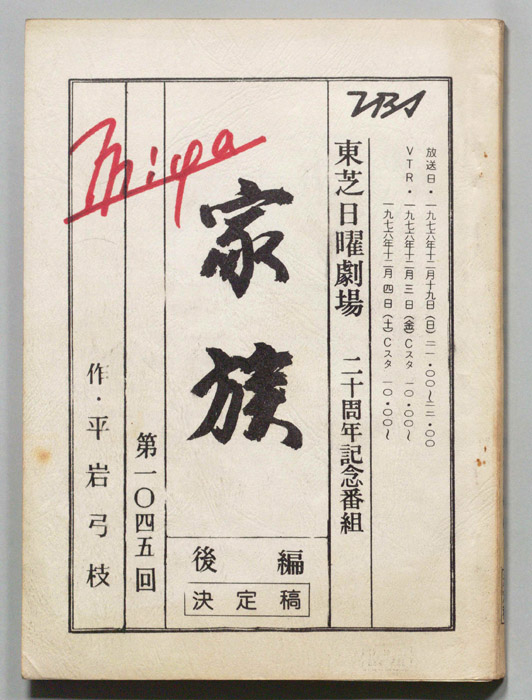 TBS
放送日・一九七六年十二月十九日(日)二一・〇〇〜二二・〇〇
VTR・一九七六年十二月三日(金)Cスタ 一〇・〇〇〜
一九七六年十二月四日(土)Cスタ 一〇・〇〇〜
東芝日曜劇場 二十周年記念番組
家族
後編
決定稿
第一〇四五回
作・平岩弓枝